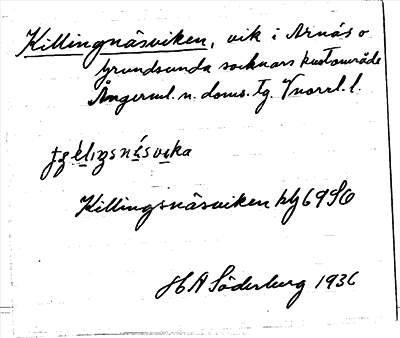 Killingnäsviken, vik i Arnäs o
Grundsunda socknars kustområde
Ångerml. n. doms. tg. Vnorrl. l.
Killingsnäsviken hlg 69 SO
H A Söderberg 1936